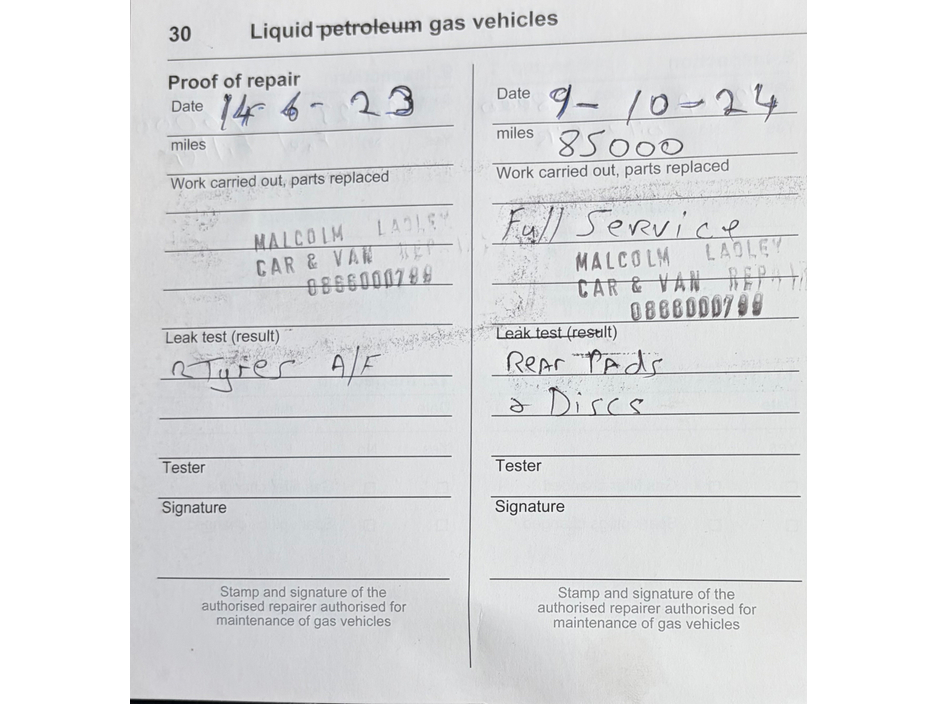 30 Liquid petroleum gas vehicles
Proof of repair
Date 14-6-23
miles
Work carried out, parts replaced
MALCOLM LADLEY
CAR & VAN REP
Leak test (result)
2 Tyres A/F
Tester
Signature
Stamp and signature of the
authorised repairer authorised for
maintenance of gas vehicles
Date 9-10-24
miles 85000
Work carried out, parts replaced
Full Service
MALCOLM LADLEY
CAR & VAN REPAI
Leak test (result)
Rear Pads
& Discs
Tester
Signature
Stamp and signature of the
authorised repairer authorised for
maintenance of gas vehicles